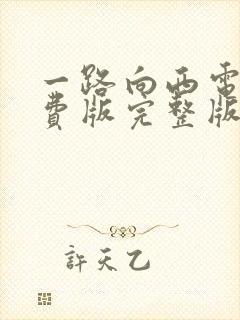 一路向西電
費版完整版
許天乙